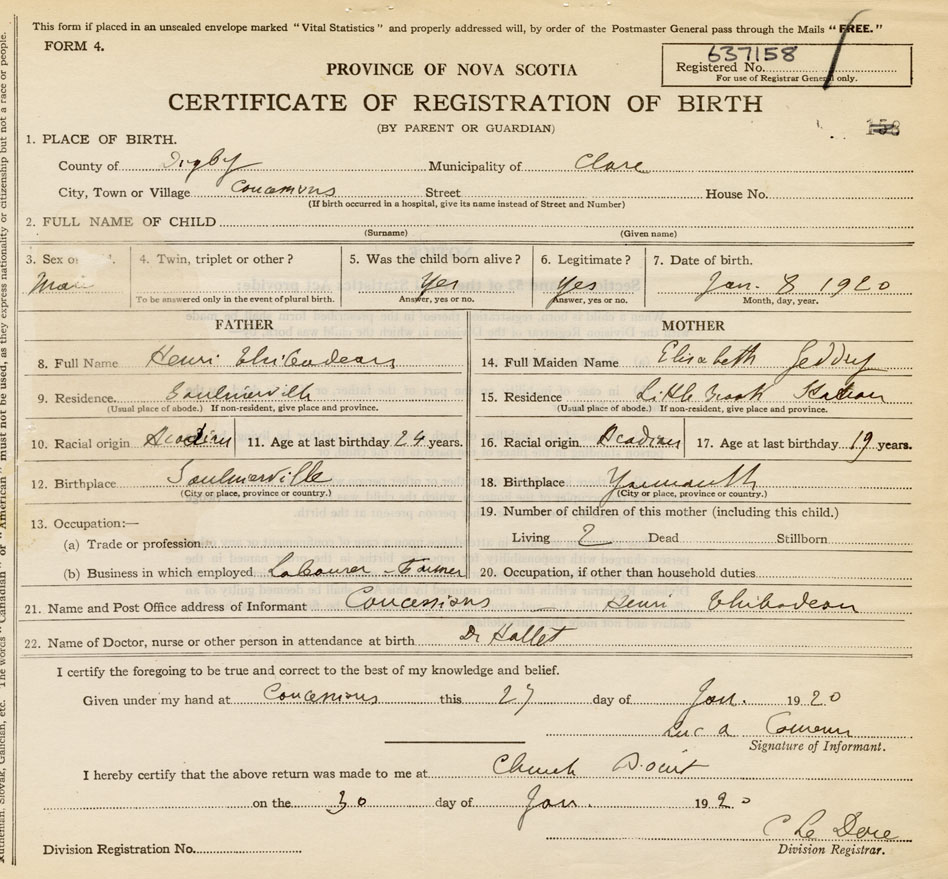 This form if placed in an unsealed envelope marked "Vital Statistics" and properly addressed will, by order of the Postmaster General pass through the Mails "FREE."
FORM 4.
637158
Registered No.
For use of Registrar General only.
PROVINCE OF NOVA SCOTIA
CERTIFICATE OF REGISTRATION OF BIRTH
(BY PARENT OR GUARDIAN)
158
1. PLACE OF BIRTH.
County of Digby Municipality of Clare
City, Town or Village Concessions Street House No.
(If birth occurred in a hospital, give its name instead of Street and Number)
2. FULL NAME OF CHILD
(Surname) (Given name)
3. Sex of 4. Twin, triplet or other? 5. Was the child born alive? 6. Legitimate? 7. Date of birth.
Yes Yes Jan. 8 1920
To be answered only in the event of plural birth. Answer, yes or no. Answer, yes or no. Month, day, year.
FATHER MOTHER
8. Full Name Henri Thibodeau 14. Full Maiden Name Elisabeth Geddry
9. Residence Saulnierville 15. Residence Little Brook Station
(Usual place of abode.) If non-resident, give place and province. (Usual place of abode.) If non-resident, give place and province.
10. Racial origin Acadian 11. Age at last birthday 24 years. 16. Racial origin Acadian 17. Age at last birthday 19 years.
12. Birthplace Saulnierville 18. Birthplace Yarmouth
(City or place, province or country.) (City or place, province or country.)
13. Occupation:— 19. Number of children of this mother (including this child.)
(a) Trade or profession Living 2 Dead Stillborn
(b) Business in which employed Labourer - Farmer 20. Occupation, if other than household duties
21. Name and Post Office address of Informant Concessions — Henri Thibodeau
22. Name of Doctor, nurse or other person in attendance at birth. Dr Hallet
I certify the foregoing to be true and correct to the best of my knowledge and belief.
Given under my hand at Concessions this 27 day of Jan. 1920
Luc a Comeau
Signature of Informant.
I hereby certify that the above return was made to me at Church Point
on the 30 day of Jan. 1920
Division Registration No. Division Registrar.